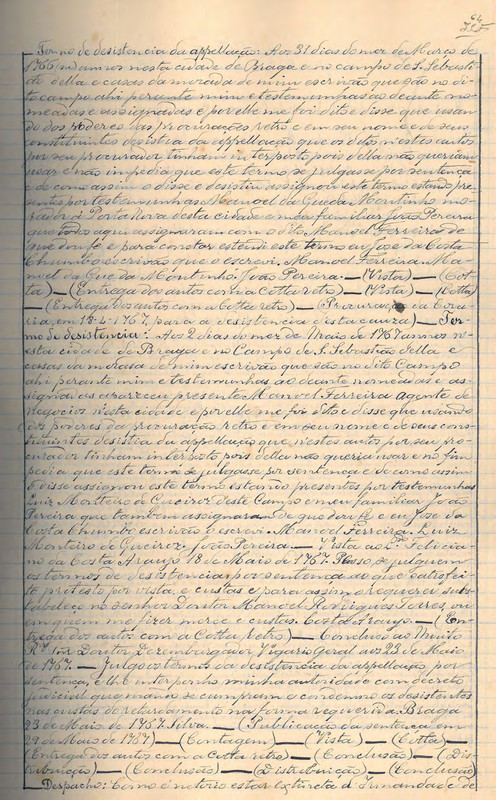 64
Termo de desistencia da appellação: Aos 31 dias do mez de Março de
1766 annos nesta cidade de Braga e no campo de S. Sebasti
ão della e casas da morada de mim escrivão que são no di
to campo ahi perante mim e testemunhas ao deante no
meadas e assignadas e por elle me foi dito e disse que usan
do dos poderes das procurações retro e em seu nome e de seus
constituintes desistia da appellação que os ditos nestes autos
por seu procurador tinham interposto pois della não queriam
usar e não impedia que este termo se julgasse por sentença
e de como assim o disse e desistiu assignou este termo estando pre
sentes por testemunhas Manoel da Gueda Montinho mo
rador á Porta Nova desta cidade e meu familiar João Pereira
que todos aqui assignaram com o dito Manoel Ferreira de
que dou fé e para constar estendi este termo eu José da Costa
Chumbo escrivão que o escrevi. Manoel Ferreira. Ma
noel da Gueda Montinho. João Pereira. — (Vista) — (Cot
ta) — (Entrega dos autos com a Cotta retro) — (Vista) — (Cotta)
— (Entrega dos autos com a Cotta retro) — (Procuração da
em 13-4-1767, para a desistencia desta causa) — Ter
mo de desistencia: Aos 2 dias do mez de Maio de 1767 annos n'es
ta cidade de Braga e no Campo de S. Sebastião della e
casas da morada de mim escrivão que são no dito Campo
ahi perante mim e testemunhas ao deante nomeadas e as
signadas appareceu presente Manoel Ferreira agente de
negocios n'esta cidade e por elle me foi dito e disse que usando
dos poderes da procuração retro e em seu nome e de seus cons
tituintes desistia da appellação que nestes autos por seu pro
curador tinham interposto pois della não queria usar e não im
pedia que este termo se julgasse por sentença e de como assim
o disse assignou este termo estando presentes por testemunhas
Luiz Monteiro de Queiroz deste Campo e meu familiar João
Pereira que tambem assignaram de que dou fé e eu José da
Costa Chumbo escrivão o escrevi. Manoel Ferreira. Luiz
Monteiro de Queiroz. João Pereira. — Vista ao Felicia
no da Costa Araujo 18 de Maio de 1767. se julguem
os termos de desistencia por sentença ao que satisfei
to protesto por vista, e custas e para assim o requerer subs
tabeleço no senhor Doutor Manoel Rodrigues Torres, ou
em quem me fizer merce e custas. Costa Araujo. — (En
trega dos autos com a Cotta retro) — Concluso ao Muito
R.do Snr. Doutor Dezembargador Vigario Geral aos 23 de Maio
de 1767. — Julgo os termos da desistencia da appellação por
sentença, e n'elle interponho minha autoridade e com decreto
judicial que mando se cumpram e condemno os desistentes
nas custas do retardamento na forma requerida. Braga
23 de Maio de 1767. Silva. — (Publicação da sentença em
29 de Maio de 1767) — (Contagem) — (Vista) — (Cotta) —
(Entrega dos autos com a Cotta retro) — (Conclusão) — (Dis
tribuição) — (Conclusão) — (Distribuição) — (Conclusão)
Despacho: Como é notorio estar extincta d'Irmandade e de